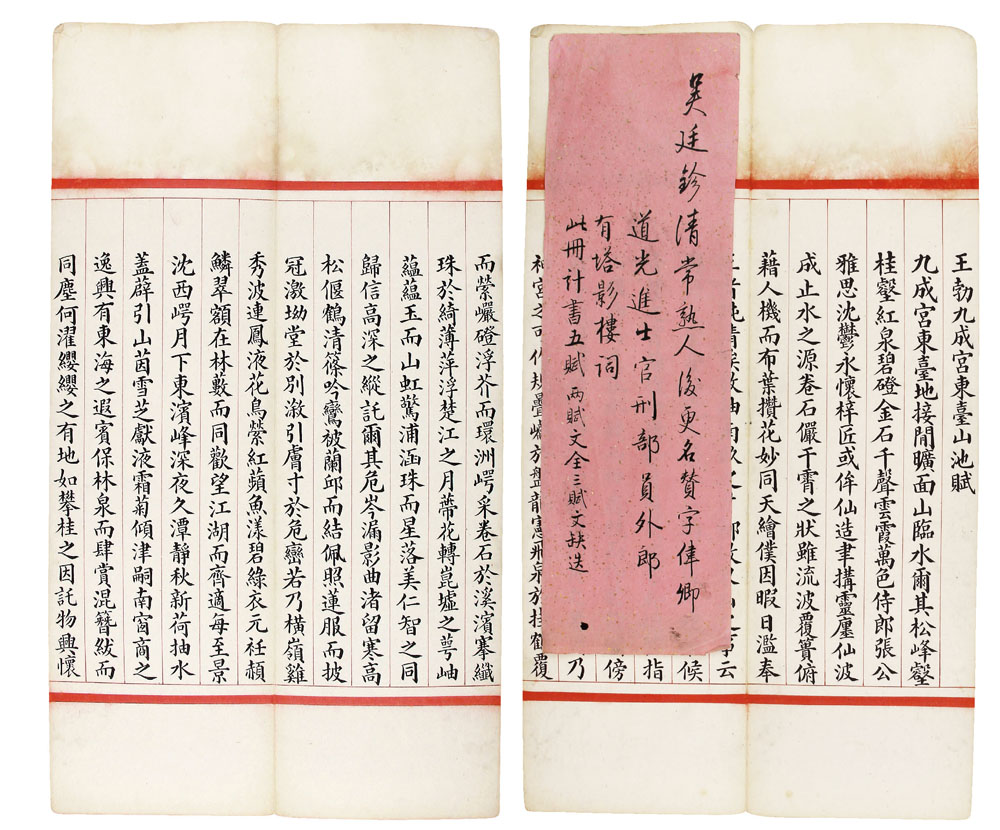 王勃九成宮東臺山池賦
九成宮東臺地接閒曠面山臨水爾其松峰壑
桂壑紅泉碧磴金石千聲雲霞萬色侍郎張公
雅思沈鬱永懷梓匠或侔仙造聿搆靈廛仙波
成止水之源卷石儼干霄之狀雖流波覆簣俯
藉人機而布葉攢花妙同天繪僕因暇日濫奉
云
候
指
傍
乃
於挂鶴覆
吳廷鉁清常熟人後更名贊字偉卿
道光進士官刑部員外郎
有塔影樓詞
此冊計書五賦兩賦文全三賦文缺迭
而縈巖磴浮芥而環洲崿采卷石於溪濱搴纖
珠於綺薄萍浮楚江之月蔕花轉崑墟之萼岫
蘊蘊玉而山虹驚浦涵珠而星落美仁智之同
歸信高深之縱託爾其危岑漏影曲渚留寒高
松偃鶴清篠吟鸞被蘭邱而結佩照蓮服而披
冠激坳堂於別漵引膚寸於危巒若乃橫嶺雞
秀波連鳳液花鳥縈紅蘋魚漾碧綠衣元衽頳
鱗翠額在林藪而同歡望江湖而齊適每至景
沈西崿月下東濱峰深夜久潭靜秋新荷抽水
蓋薜引山茵雪芝獻液霜菊傾津嗣南窗商之
逸興有東海之遐賓保林泉而肆賞混簪紱而
同塵何濯纓纓之有地如攀桂之因託物興懷